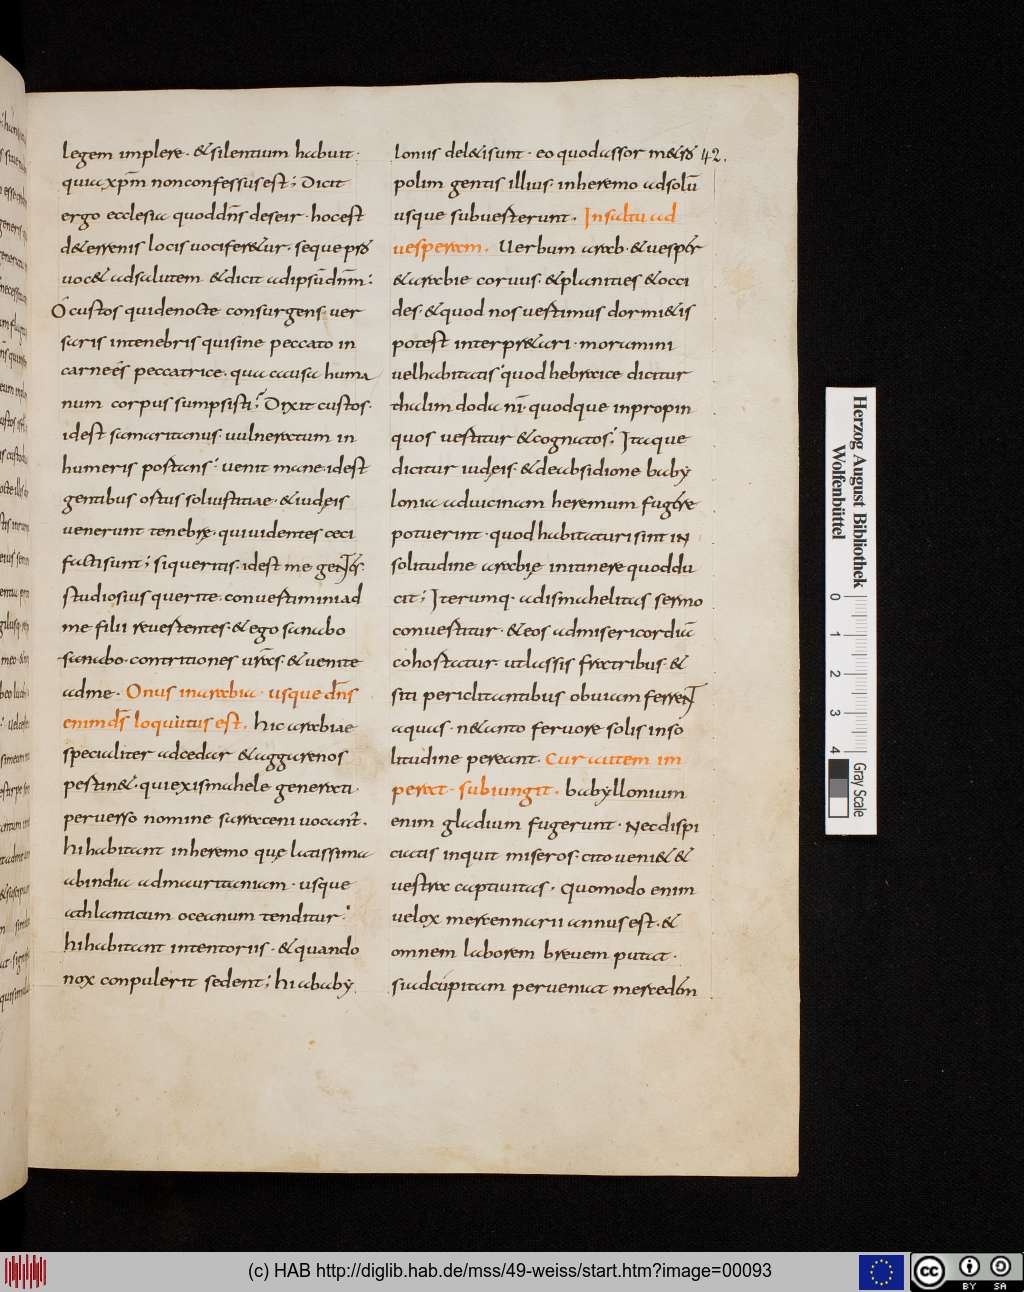 legem implere· &silentium habuit·
quia xp̄m nonconfessus est; Dicit
ergo ecclesia quod dn̄s deseir· hocest
d&errenis locis uocifer&ur· seque p̄
uoc& adsalutem &dicit adipsū dn̄m;
O custos quidenocte consurgens uer
saris intenebris quisine peccato in
carnees peccatrice· qua causa huma
num corpus sumpsisti; Dixit custos·
idest samaritanus uulneratum in
humeris postans; uenit mane· idest
gentibus ostus soliustitiae· &iudęis
uenerunt tenebrę· quiuidentes ceci
facti sunt; siqueritis· idest me
studiosius querite· conuestimini ad
me filii reuestentes· &ego sanabo
sanabo· contritiones uras· &uenite
adme· Onus inarabia· usque dn̄s
enim ds̄ loquutus est. hic arabiae
specialiter adcedar &aggarenos
pestin&· quiexismahele generati·
peruerso nomine sarraceni uocant̄.
hihabitant inheremo quę latissima
abindia admauritaniam· usque
athlanticum oceanum tenditur·
hihabitant intentoriis· &quando
nox conpulerit sedent; hi ababy
loniis del&isunt· eo quod assor 42.
polim gentis illius· inheremo adsolū
usque subuesterunt. Insaltu ad
uesperam. Uerbum arab· &uesper
&arabie coruus· &planities &occi
des· &quod nos uestimus dormi&is
potest interpr&ari· moramini
uelhabitatis quod hebraice dicitur
thalim dodanī· quodque inpropin
quos uestitur &cognatos; Itaque
dicitur iudęis· &deabsidione baby
lonia aduicinam heremum fugere
potuerint· quod habitaturi sint in
solitudine arabię initinere quoddu
cit; Iterumq· adismahelitas sermo
conuestitur· &eos admisericordiā
cohostatur· utlassis fratribus· &
siti periclitantibus obuiam ferrent
aquas· n&anto feruore solis inso
litudine pereant. Cur autem im
perat· subiungit· babyllonium
enim gladium fugerunt· Necdispi
ciatis inquit miseros· cito ueni& &
uestra captiuitas· quomodo enim
uelox mercennarii annus est· &
omnem laborem breuem putat·
siadcupitam perueniat mercedem
Herzog August Bibliothek
Wolfenbüttel
0 1 2 3 4 Gray Scale
(c) HAB http://diglib.hab.de/mss/49-weiss/start.htm?image=00093
cc BY SA